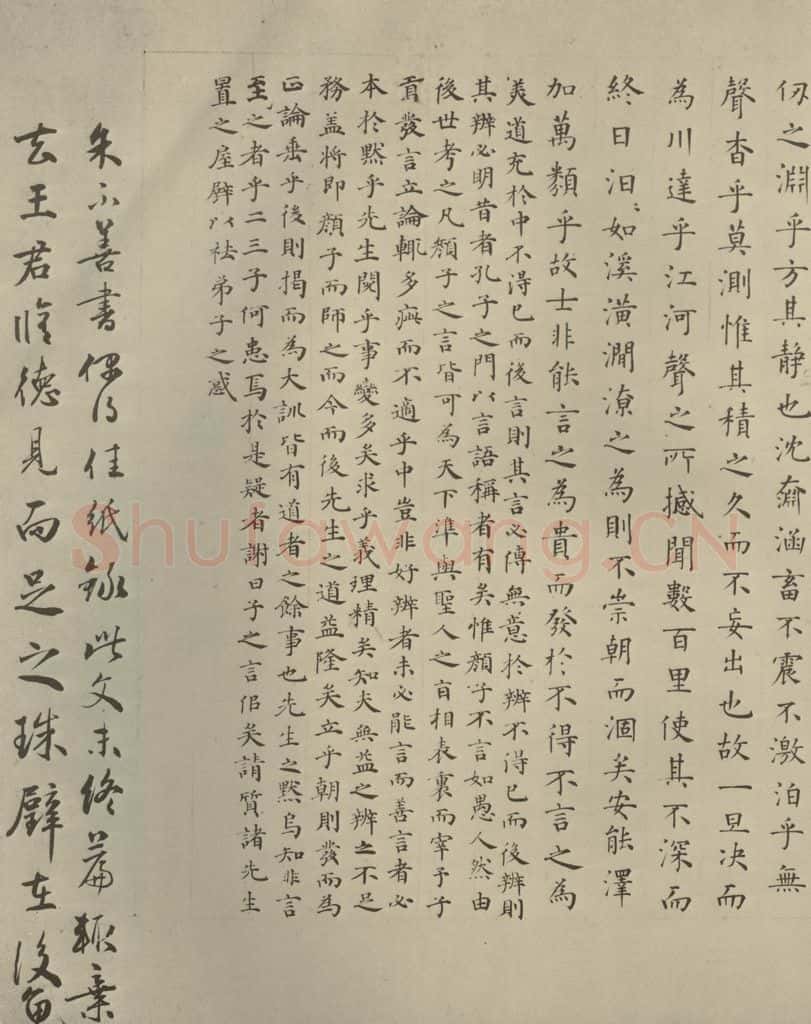 仞之淵乎方其静也沈㴉涵畜不震不激泊乎無
聲杳乎莫測惟其積之久而不妄出也故一旦决而
為川達乎江河聲之所撼聞數百里使其不深而
終日汩汩如溪潢澗潦之為則不崇朝而涸矣安能澤
加萬類乎故士非能言之為貴而發於不得不言之為
美道充於中不得已而後言則其言必傳無意於辨不得已而後辨則
其辨必明昔者孔子之門以言語稱者有矣惟顔子不言如愚人然由
後世考之凡顔子之言皆可為天下準與聖人之言相表裏而宰予子
貢發言立論輒多疵而不適乎中豈非好辨者未必能言而善言者必
本於默乎先生閱乎事變多矣求乎義理精矣知夫無益之辨之不足
務盖將即顔子而師之而今而後先生之道益隆矣立乎朝則發而為
正論垂乎後則揭而為大訓皆有道者之餘事也先生之默烏知非言
至之者乎二三子何患焉於是疑者謝曰子之言信矣請質諸先生
置之屋壁以祛弟子之惑
朱不善書偶得佳紙錄此文未終篇輒棄
去王君惟德見而足之珠璧在後留
Shufawang.CN